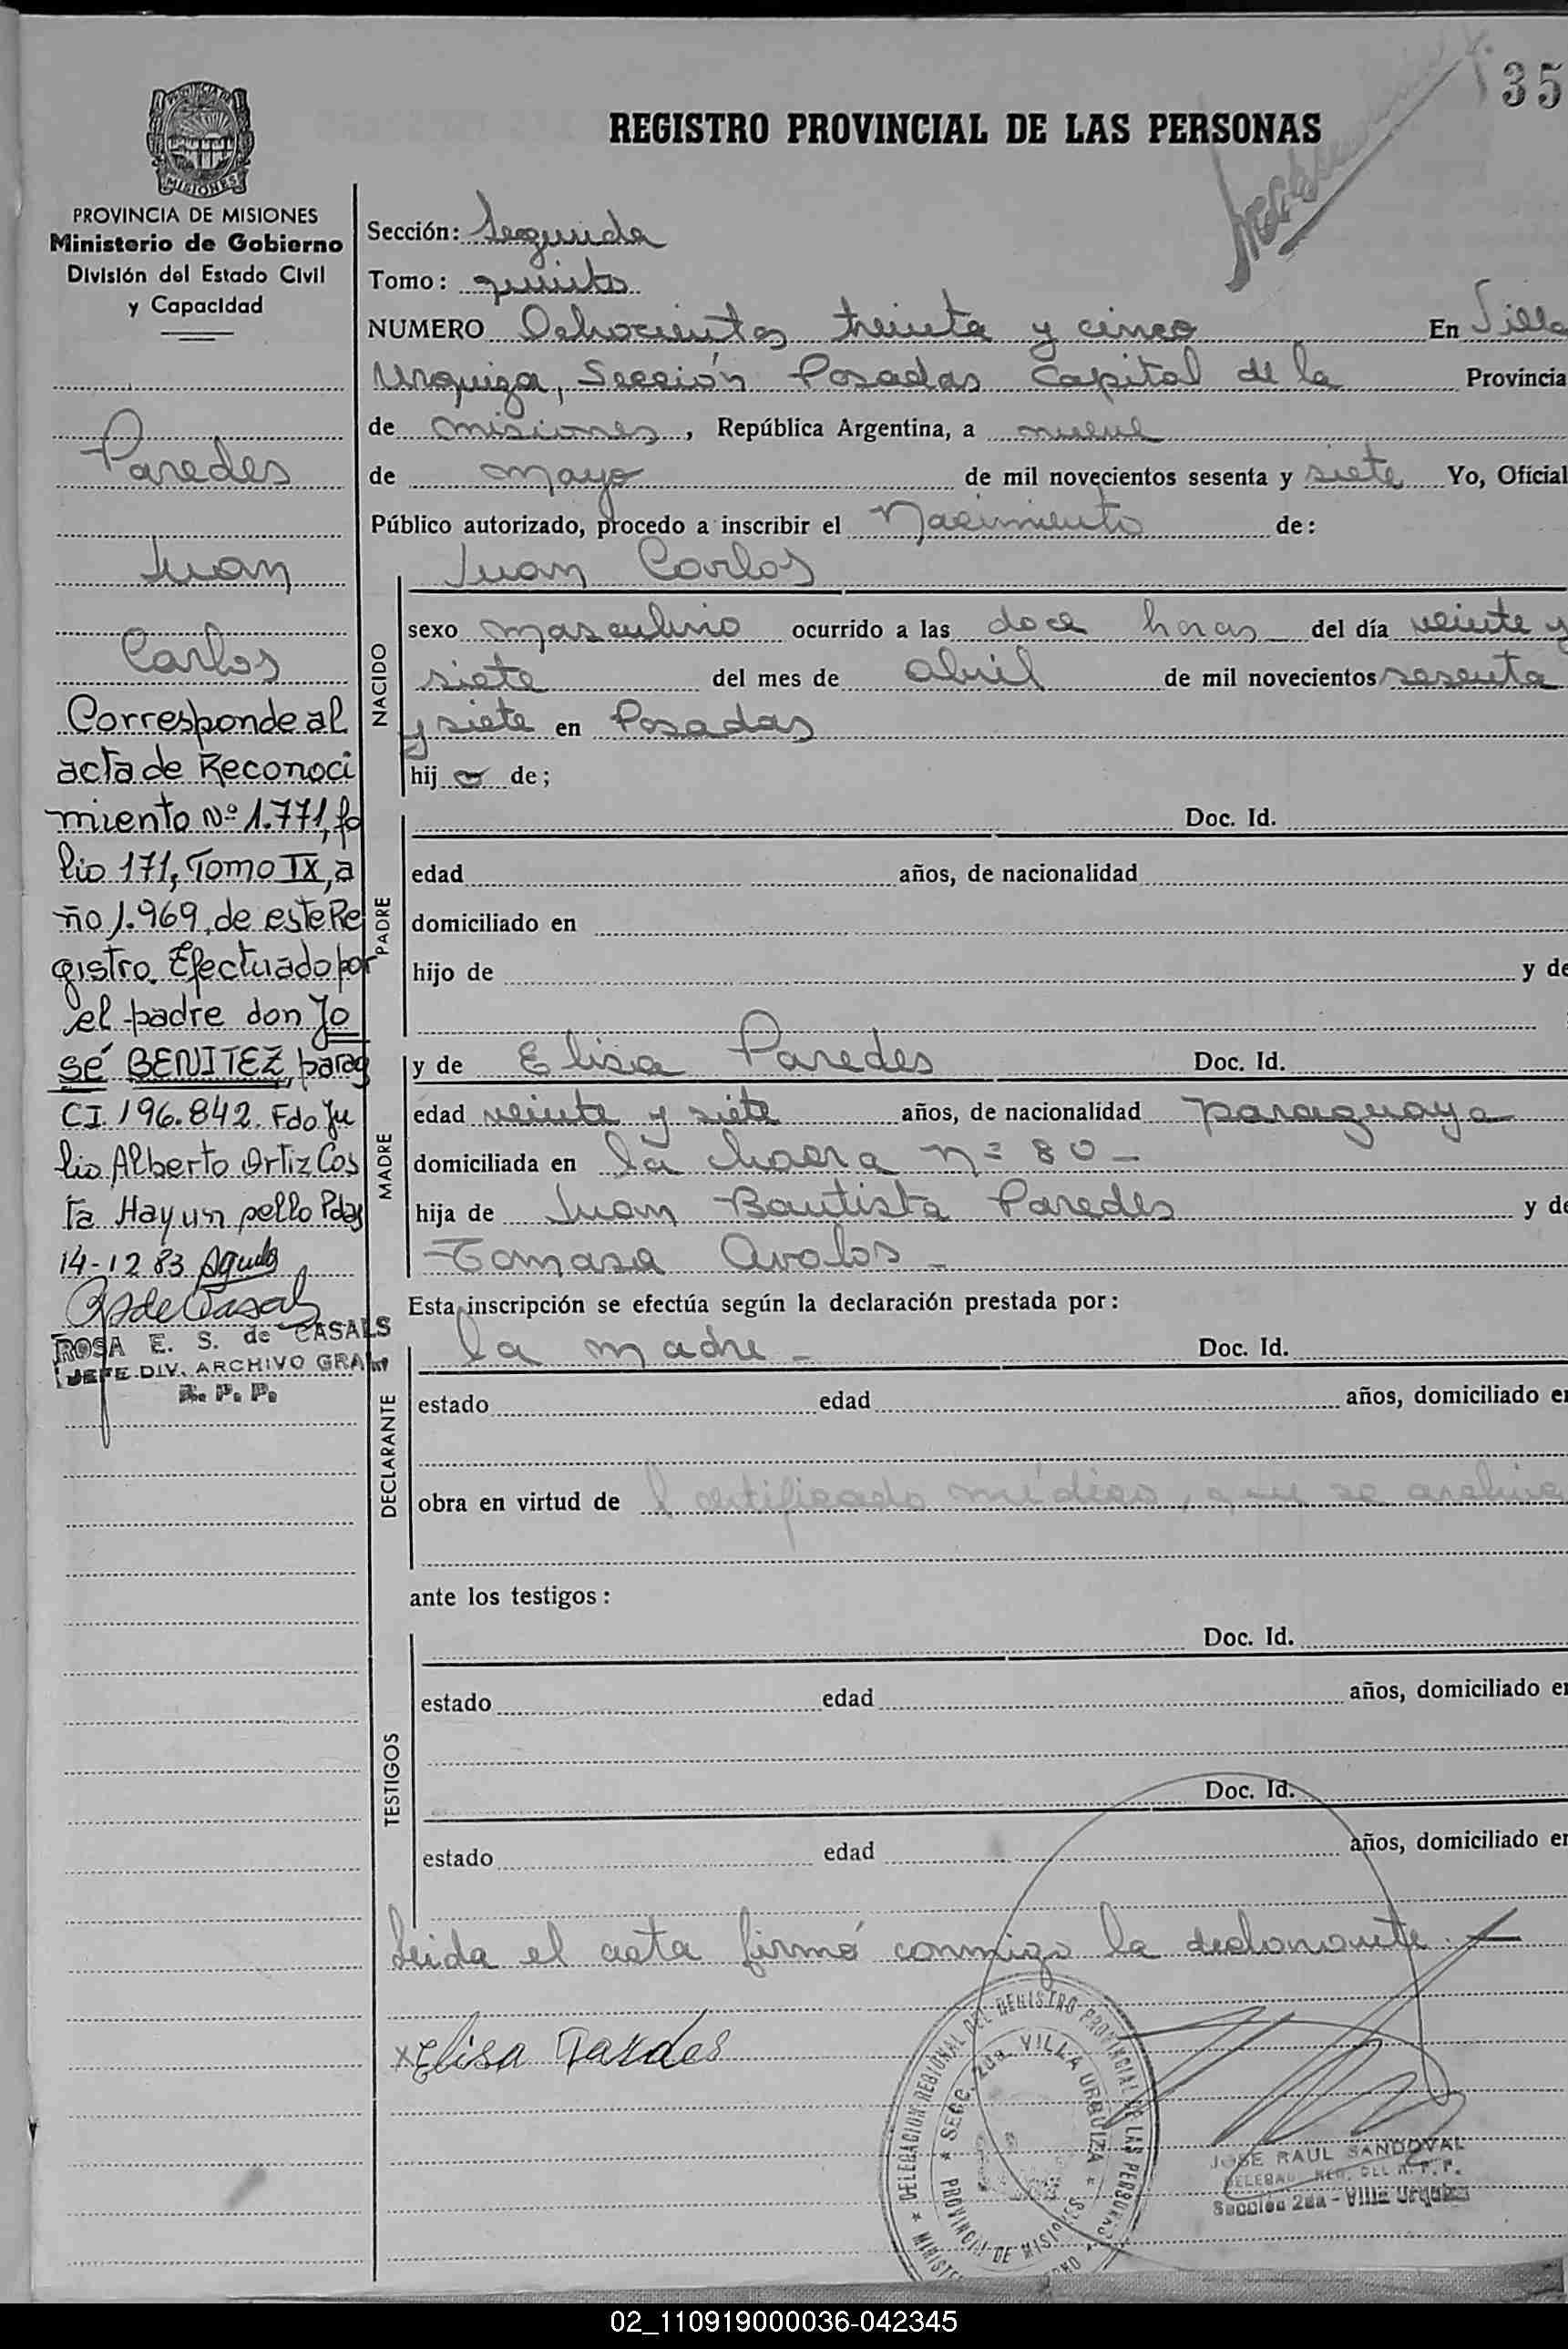 35
REGISTRO PROVINCIAL DE LAS PERSONAS
MISIONES
PROVINCIA DE MISIONES
Ministerio de Gobierno
División del Estado Civil
y Capacidad
Paredes
Juan
Carlos
Corresponde al
acta de Reconoci
miento Nº 1.771, fo
lio 171, Tomo IX, a
ño 1.969, de este Re
gistro. Efectuado por
el padre don Jo
sé BENITEZ, parag
CI. 196.842. Fdo Ju
lio Alberto Ortiz Cos
ta Hay un sello Pdas
14-12 83
ROSA E. S. de CASALS
JEFE DIV. ARCHIVO GRAL
R. P. P.
Sección: Segunda
Tomo: quinto
NUMERO Ochocientos treinta y cinco En Villa
Urquiza, Sección Posadas Capital de la Provincia
de Misiones, República Argentina, a nueve
de mayo de mil novecientos sesenta y siete Yo, Oficial
Público autorizado, procedo a inscribir el Nacimiento de:
NACIDO
Juan Carlos
sexo masculino ocurrido a las doce horas del día veinte y
siete del mes de abril de mil novecientos sesenta
y siete en Posadas
hij o de;
PADRE
Doc. Id.
edad años, de nacionalidad
domiciliado en
hijo de y de
MADRE
y de Elisa Paredes Doc. Id.
edad veinte y siete años, de nacionalidad paraguaya
domiciliada en la chacra nº 80 -
hija de Juan Bautista Paredes y de
Tomasa Avalos -
Esta inscripción se efectúa según la declaración prestada por:
DECLARANTE
la madre - Doc. Id.
estado edad años, domiciliado en
obra en virtud de l certificado médico, que se archiva
ante los testigos:
TESTIGOS
Doc. Id.
estado edad años, domiciliado en
Doc. Id.
estado edad años, domiciliado en
Leida el acta firmó conmigo la declarante. -
x Elisa Pardes
DELEGACION REGIONAL DEL REGISTRO PROVINCIAL DE LAS PERSONAS
SECC. 2da. VILLA URQUIZA
PROVINCIA DE MISIONES
JOSE RAUL SANDOVAL
DELEGAD REG. DEL R. P. P.
Sección 2da - Villa Urquiza
02_110919000036-042345